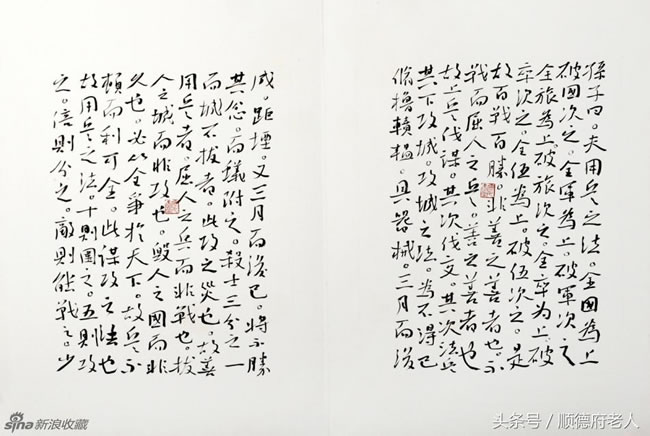 孫子曰。夫用兵之法。全國為上
破國次之。全軍為上。破軍次之
全旅為上。破旅次之。全卒为上。破
卒次之。全伍為上。破伍次之。是
故百戰百勝。非善之善者也。不
戰而屈人之兵。善之善者也
故上兵伐謀。其次伐交。其次伐兵
其下攻城。攻城之法。為不得已
脩櫓轒輼。具器械。三月而後
成。距堙。又三月而後已。將不勝
其忿。而蟻附之。殺士三分之一
而城不拔者。此攻之災也。故善
用兵者。屈人之兵而非戰也。拔
人之城而非攻也。毀人之國而非
久也。必以全爭於天下。故兵不
頓而利可全。此謀攻之法也
故用兵之法。十則圍之。五則攻
之。倍則分之。敵則能戰之。少
sina新浪收藏
头条号/顺德府老人